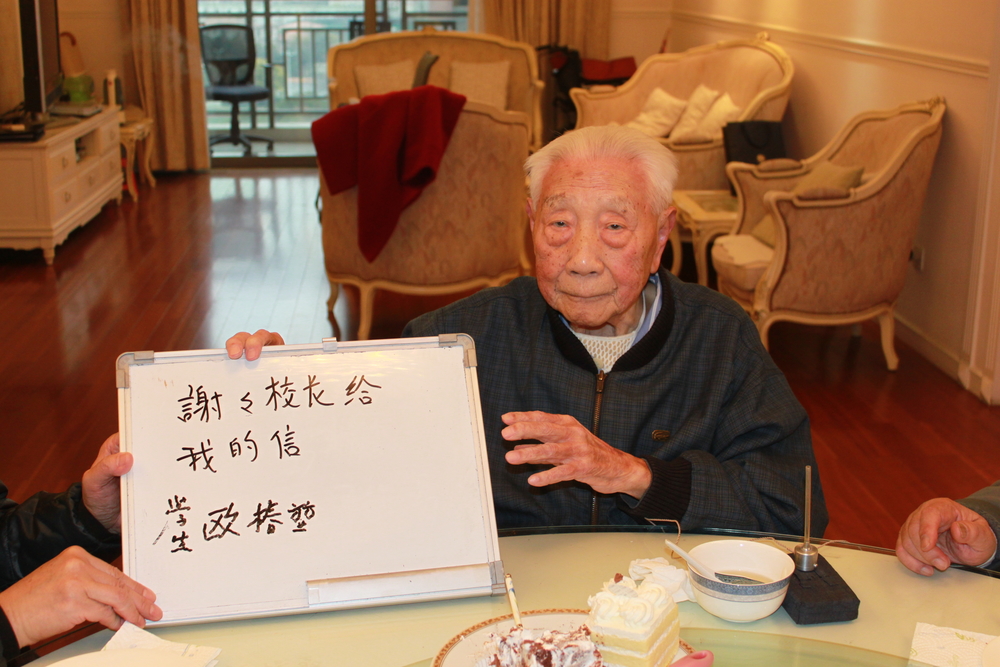 謝々校长给
我的信
学生 欧椿